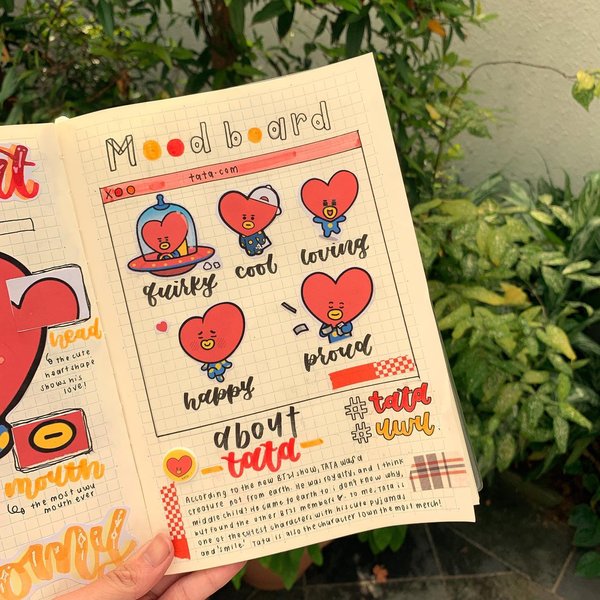 head
↳ the cute
heart shape
shows his
love!
mouth
↳ the most uwu
mouth ever
Mood board
X
tata.com
quirky
cool
loving
happy
proud
#tata
#uwu
about
-tata-
According to the new BT21 show, TATA was a
creature not from earth. He was royalty, and i think
middle child. He came to earth to i don't know why,
but found the other BT21 members ♥. To me, Tata is
one of the cutest characters with his cute pyjamas
and 'smile'. Tata is also the character i own the most merch!